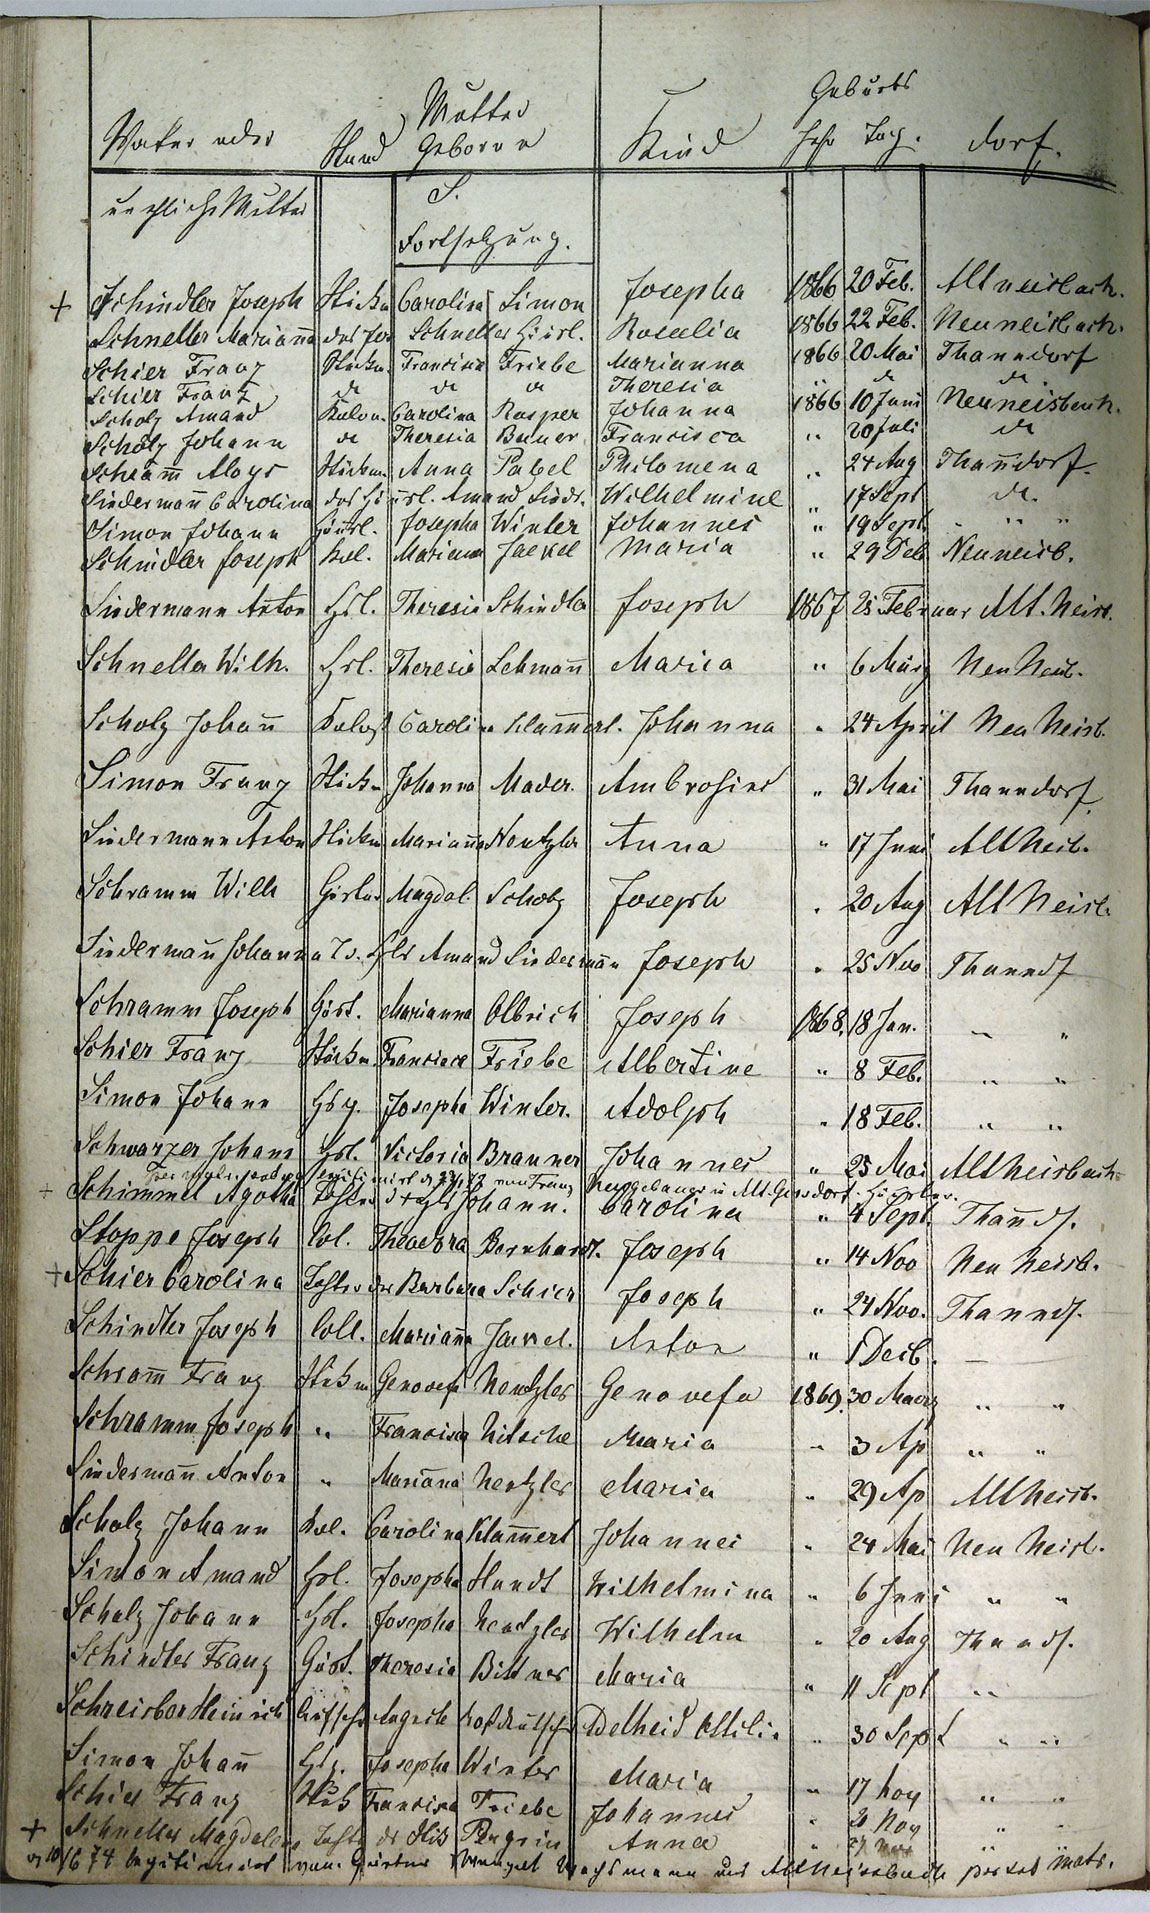 Geburts
Mutter
Vater oder Stand Geborne Kind Jahr Tag. Dorf.
uneheliche Mutter S.
Fortsetzung.
+ Schindler Joseph Stickm Carolina Simon Josepha 1866 20 Feb. Altneisbach.
Schneller Marianna des Jos Schneller Häusl. Roselia 1866 22 Feb. Neuneisbach.
Schier Franz Stickm. Francisca Friebe Marianna 1866 20 Mai Thanndorf
Schier Franz do do do Theresia " do do
Scholz Amand Kolon. Carolina Kasper Johanna 1866 10 Juni Neuneisbach.
Scholz Johann do Theresia Bauer Francisca " 20 Juli do
Schram̄ Aloys Stickm. Anna Pabel Philomena " 24 Aug Than̄dorf
Siederman̄ Carolina des Häusl. Amand Siedr. Wilhelmine " 17 Sept do.
Simon Johann Häusl. Josepha Winter Johannes " 19 Sept. " " "
Schindler Joseph Kol. Mariana Jaekel Maria " 29 Deb Neuneisb.
Siedermann Anton Hsl. Theresia Schindler Joseph 1867 25 Februar Alt. Neisb.
Schneller Wilh. Hsl. Theresia Lehman̄ Maria " 6 März Neu Neisb.
Scholz Johan̄ Carolina Klam̄ert. Johanna " 24 April Neu Neisb.
Simon Franz Stickm Johanna Mader. Ambrosius " 31 Mai Thanndorf
Siedermann Anton Stickm Marian̄a Nentzler Anna " 17 Juni Alt Neisb.
Schramm Wilh Gärtn Magdal. Scholz Joseph " 20 Aug Alt Neisb.
Siederman̄ Johanna T. d. Hsls Amand Siederman̄ Joseph " 25 Nov Thanndf
Schramm Joseph Gärt. Marianna Olbrich Joseph 1868. 18 Jan. " "
Schier Franz Stickm Francisca Friebe Albertine " 8 Feb. " "
Simon Johann Hsg. Josepha Winter. Adolph " 18 Feb. " "
Schwarzer Johann Hsl. Victoria Brauner Johannes " 25 Mai Altneisbach
legitimirt von Franz Alt Gersdorf Häusler.
+ Schimmel Agatha Tochter d + Hsls Johann. Carolina " 4 Sept. Than̄df.
Stoppe Joseph Col. Theodora Bernhardt. Joseph " 14 Nov Neu Neisb.
+ Schier Carolina Tochter der Barbara Schier Joseph " 24 Nov. Thanndf.
Schindler Joseph Coll. Marian̄a Jaekel. Anton " 1 Decb. —
Schram̄ Franz Stickm Genovefa Nentzler Genovefa 1869. 30 Maerz " "
Schramm Joseph " Francisca Nitsche Maria " 3 Ap " "
Siederman̄ Anton " Marian̄a Nentzler Maria " 29 Ap Alt Neisb.
Scholz Johann Kol. Carolina Klam̄ert Johannes " 24 Mai Neu Neisb.
Simon Amand Hsl. Josepha Hundt Wilhelmina " 6 Juni " "
Scholz Johann Hsl. Josepha Nentzler Wilhelm " 20 Aug Thandf.
Schindler Franz Gärt. Theresia Bittner Maria " 11 Sept "
Schreiber Heinrich Roßdeutscher Adelheid Ottilia " 30 Sept " "
Simon Johan̄ Hsg. Josepha Winter Maria " 17 Nov " "
Schier Franz Stick Francisca Friebe Johannes " 20 Nov "
+ Schneller Magdalena Tocht des Stick Peregrin Anna " 27 Nov "
10/6 74 legitimirt vom Gärtner Wenzel Wachsmann aus Altneissbach per sub. matr.